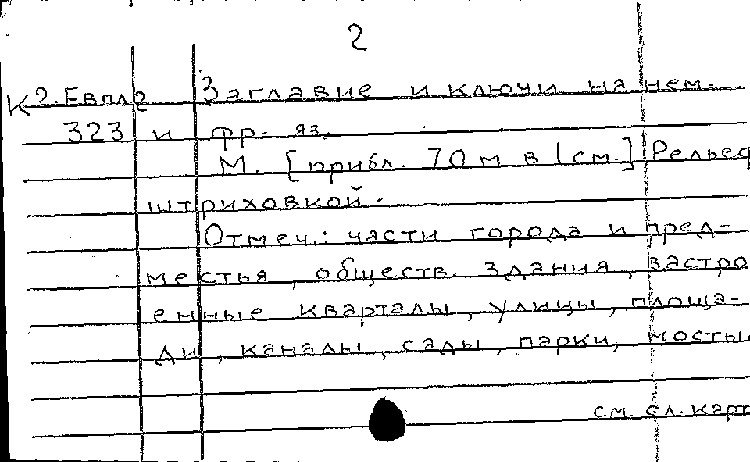 2
К2.Евпл2 Заглавие и ключи на нем.
323 и фр. яз.
М. [прибл. 70 м в 1 см.] Рельеф
штриховкой.
Отмеч.: части города и пред-
местья, обществ. здания, застро
енные кварталы, улицы, площа-
ди, каналы, сады, парки, мосты.
см. сл. карт